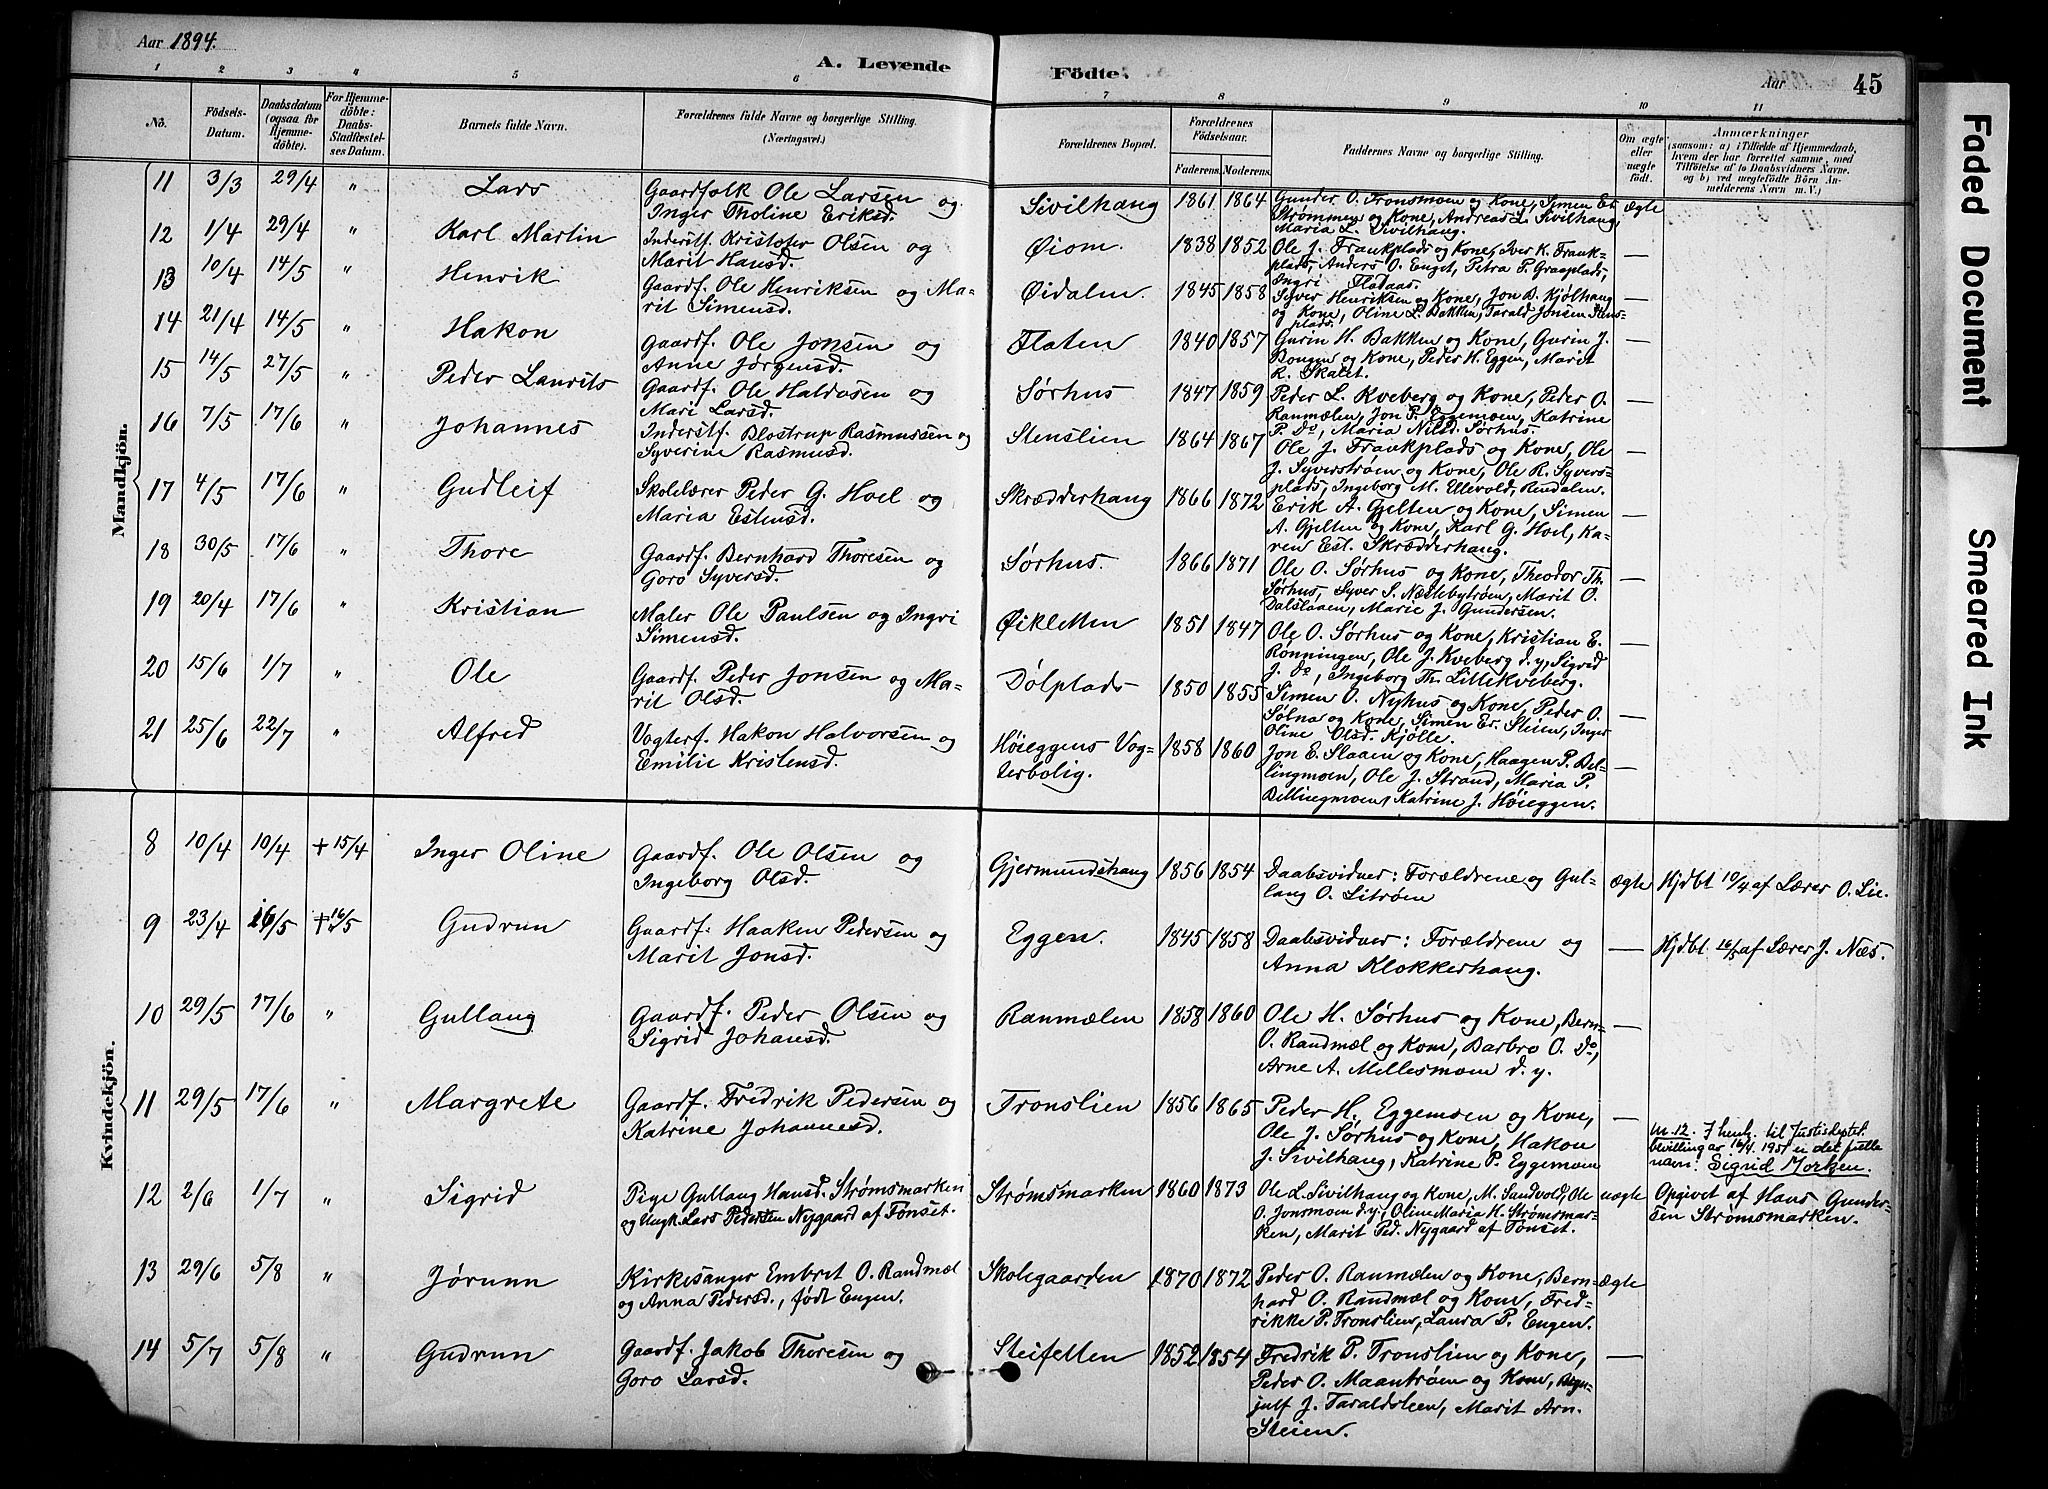 Aar 1894.
A. Levende
Födte.
Aar
45
1 2 3 4 5 6 7 8 9 10 11
No.
Födsels-Datum.
Daabsdatum (ogsaa for Hjemmedöbte).
For Hjemmedöbte: Daabs-Stadfæstelses Datum.
Barnets fulde Navn.
Forældrenes fulde Navne og borgerlige Stilling.
(Næringsvei.)
Forældrenes Bopæl.
Forældrenes Födselsaar.
Faderens. Moderens.
Faddernes Navne og borgerlige Stilling.
Om ægte eller uægte födt.
Anmærkninger
(saasom: a) i Tilfælde af Hjemmedaab, hvem der har forrettet samme, med Tilföielse af to Daabsvidners Navne. og b) ved uægtefödte Börn Anmelderens Navn m. V.)
Mandkjön.
11 3/3 29/4 " Lars Gaardfolk Ole Larsen og Inger Tholine Eriksd. Sivilhaug 1861 1864 Gunder O. Tronsmoen og Kone, Simen Er. Strømmen og Kone, Andreas L. Sivilhaug, Maria L. Sivilhaug. ægte
12 1/4 29/4 " Karl Martin Inderstf. Kristofer Olsen og Marit Hansd. Øiom. 1838 1852 Ole J. Frankplads og Kone, Iver K. Frankplads, Anders O. Enget, Petra P. Graaplads, Ingri Flodaas. —
13 10/4 14/5 " Henrik Gaardf. Ole Henriksen og Marit Simensd. Øidalen. 1845 1858 Syver Henriksen og Kone, Jon B. Kjølhaug og Kone, Oline L. Bakken, Tarald Jonsen —
14 21/4 14/5 " Hakon Gaardf. Ole Jonsen og Anne Jørgensd. Flaten 1840 1857 Gurin H. Bakken og Kone, Gurin J. Bougen og Kone, Peder H. Eggen, Marit R. Skalet. —
15 14/5 27/5 " Peder Laurits Gaardf. Ole Haldosen og Mari Larsd. Sørhus 1847 1859 Peder L. Kveberg og Kone, Peder O. Ranmælen, Jon P. Eggemoen, Katrine P. Do, Maria Nilsd. Sørhus. —
16 7/5 17/6 " Johannes Inderstf. Blostrup Rasmussen og Syverine Rasmusd. Stenslien 1864 1867 Ole J. Frankplads og Kone, Ole J. Syverstrøen og Kone, Ole R. Syversplads, Ingeborg M. Ellevold, Rendalen. —
17 4/5 17/6 " Gudleif Skolelærer Peder G. Hoel og Maria Estensd. Skrædderhaug 1866 1872 Erik A. Gjelten og Kone, Simen A. Gjelten og Kone, Karl G. Hoel, Karen Est. Skrædderhaug. —
18 30/5 17/6 " Thore Gaardf. Bernhard Thoresen og Goro Syversd. Sørhus. 1866 1871 Ole O. Sørhus og Kone, Theodor Th. Sørhus, Syver S. Næstebytrøen, Marit O. Dalslaaen, Marie J. Gundersen. —
19 20/4 17/6 " Kristian Maler Ole Paulsen og Ingri Simensd. Øikletten 1851 1847 Ole O. Sørhus og Kone, Kristian E. Rønningen, Ole J. Kveberg d.y, Sigrid J. Do, Ingeborg Th. Lillekveberg. —
20 15/6 1/7 " Ole Gaardf. Peder Jonsen og Marit Olsd. Dølplads 1850 1855 Simen O. Nyhus og Kone, Peder O. Sølna og Kone, Simen Er. Steien, Inger Oline Olsd. Kjølle. —
21 25/6 22/7 " Alfred Vogterf. Hakon Halvorsen og Emilie Kristensd. Høieggens Vogterbolig. 1858 1860 Jon E. Slaaen og Kone, Haagen P. Bellingmoen, Ole J. Strand, Maria P. Bellingmoen, Katrine J. Høieggen. —
Kvindekjön.
8 10/4 10/4 + 15/4 Inger Oline Gaardf. Ole Olsen og Ingeborg Olsd. Gjermundshaug 1856 1854 Daabsvidner: Forældrene og Gullaug O. Litrøen ægte Hjdbt 10/4 af Lærer O. Lie.
9 23/4 16/5 + 16/5 Gudrun Gaardf. Haaken Pedersen og Marit Jonsd. Eggen. 1845 1858 Daabsvidner: Forældrene og Anna Klokkerhaug. — Hjdbt. 16/5 af Lærer J. Næs.
10 29/5 17/6 " Gullaug Gaardf. Peder Olsen og Sigrid Johansd. Ranmælen 1858 1860 Ole H. Sørhus og Kone, Bern. O. Randmæl og Kone, Barbro O. Do, Arne A. Mellesmoen d. y. —
11 29/5 17/6 " Margrete Gaardf. Fredrik Pedersen og Katrine Johannesd. Tronslien 1856 1865 Peder H. Eggemoen og Kone, Ole J. Sørhus og Kone, Hakon J. Sivilhaug, Katrine P. Eggemoen —
Nr. 12. I henh. til Justisdeptet. bevilling av 16/4. 1951 er det fulle navn: Sigrid Morken.
12 2/6 1/7 " Sigrid Pige Gullaug Hansd. Strømsmarken og Ungk. Lars Pedersen Nygaard af Tønset. Strømsmarken 1860 1873 Ole L. Sivilhaug og Kone, M. Sandvold, Ole O. Jonsmoen d.y, Oline Maria H. Strømsmarken, Marit Ped. Nygaard af Tønset. uægte Opgivet af Hans Gundersen Strømsmarken.
13 29/6 5/8 " Jørunn Kirkesanger Embret O. Randmæl og Anna Pedersd., født Engen. Skolegaarden 1870 1872 Peder O. Ranmælen og Kone, Bernhard O. Randmæl og Kone, Fredrikke P. Tronslien, Laura P. Engen. ægte
14 5/7 5/8 " Gudrun Gaardf. Jakob Thoresen og Goro Larsd. Steifetten 1852 1854 Fredrik P. Tronslien og Kone, Peder O. Maantrøen og Kone, Brynjulf J. Taraldsleen, Marit Arn. Steien. —
Faded Document
Smeared Ink